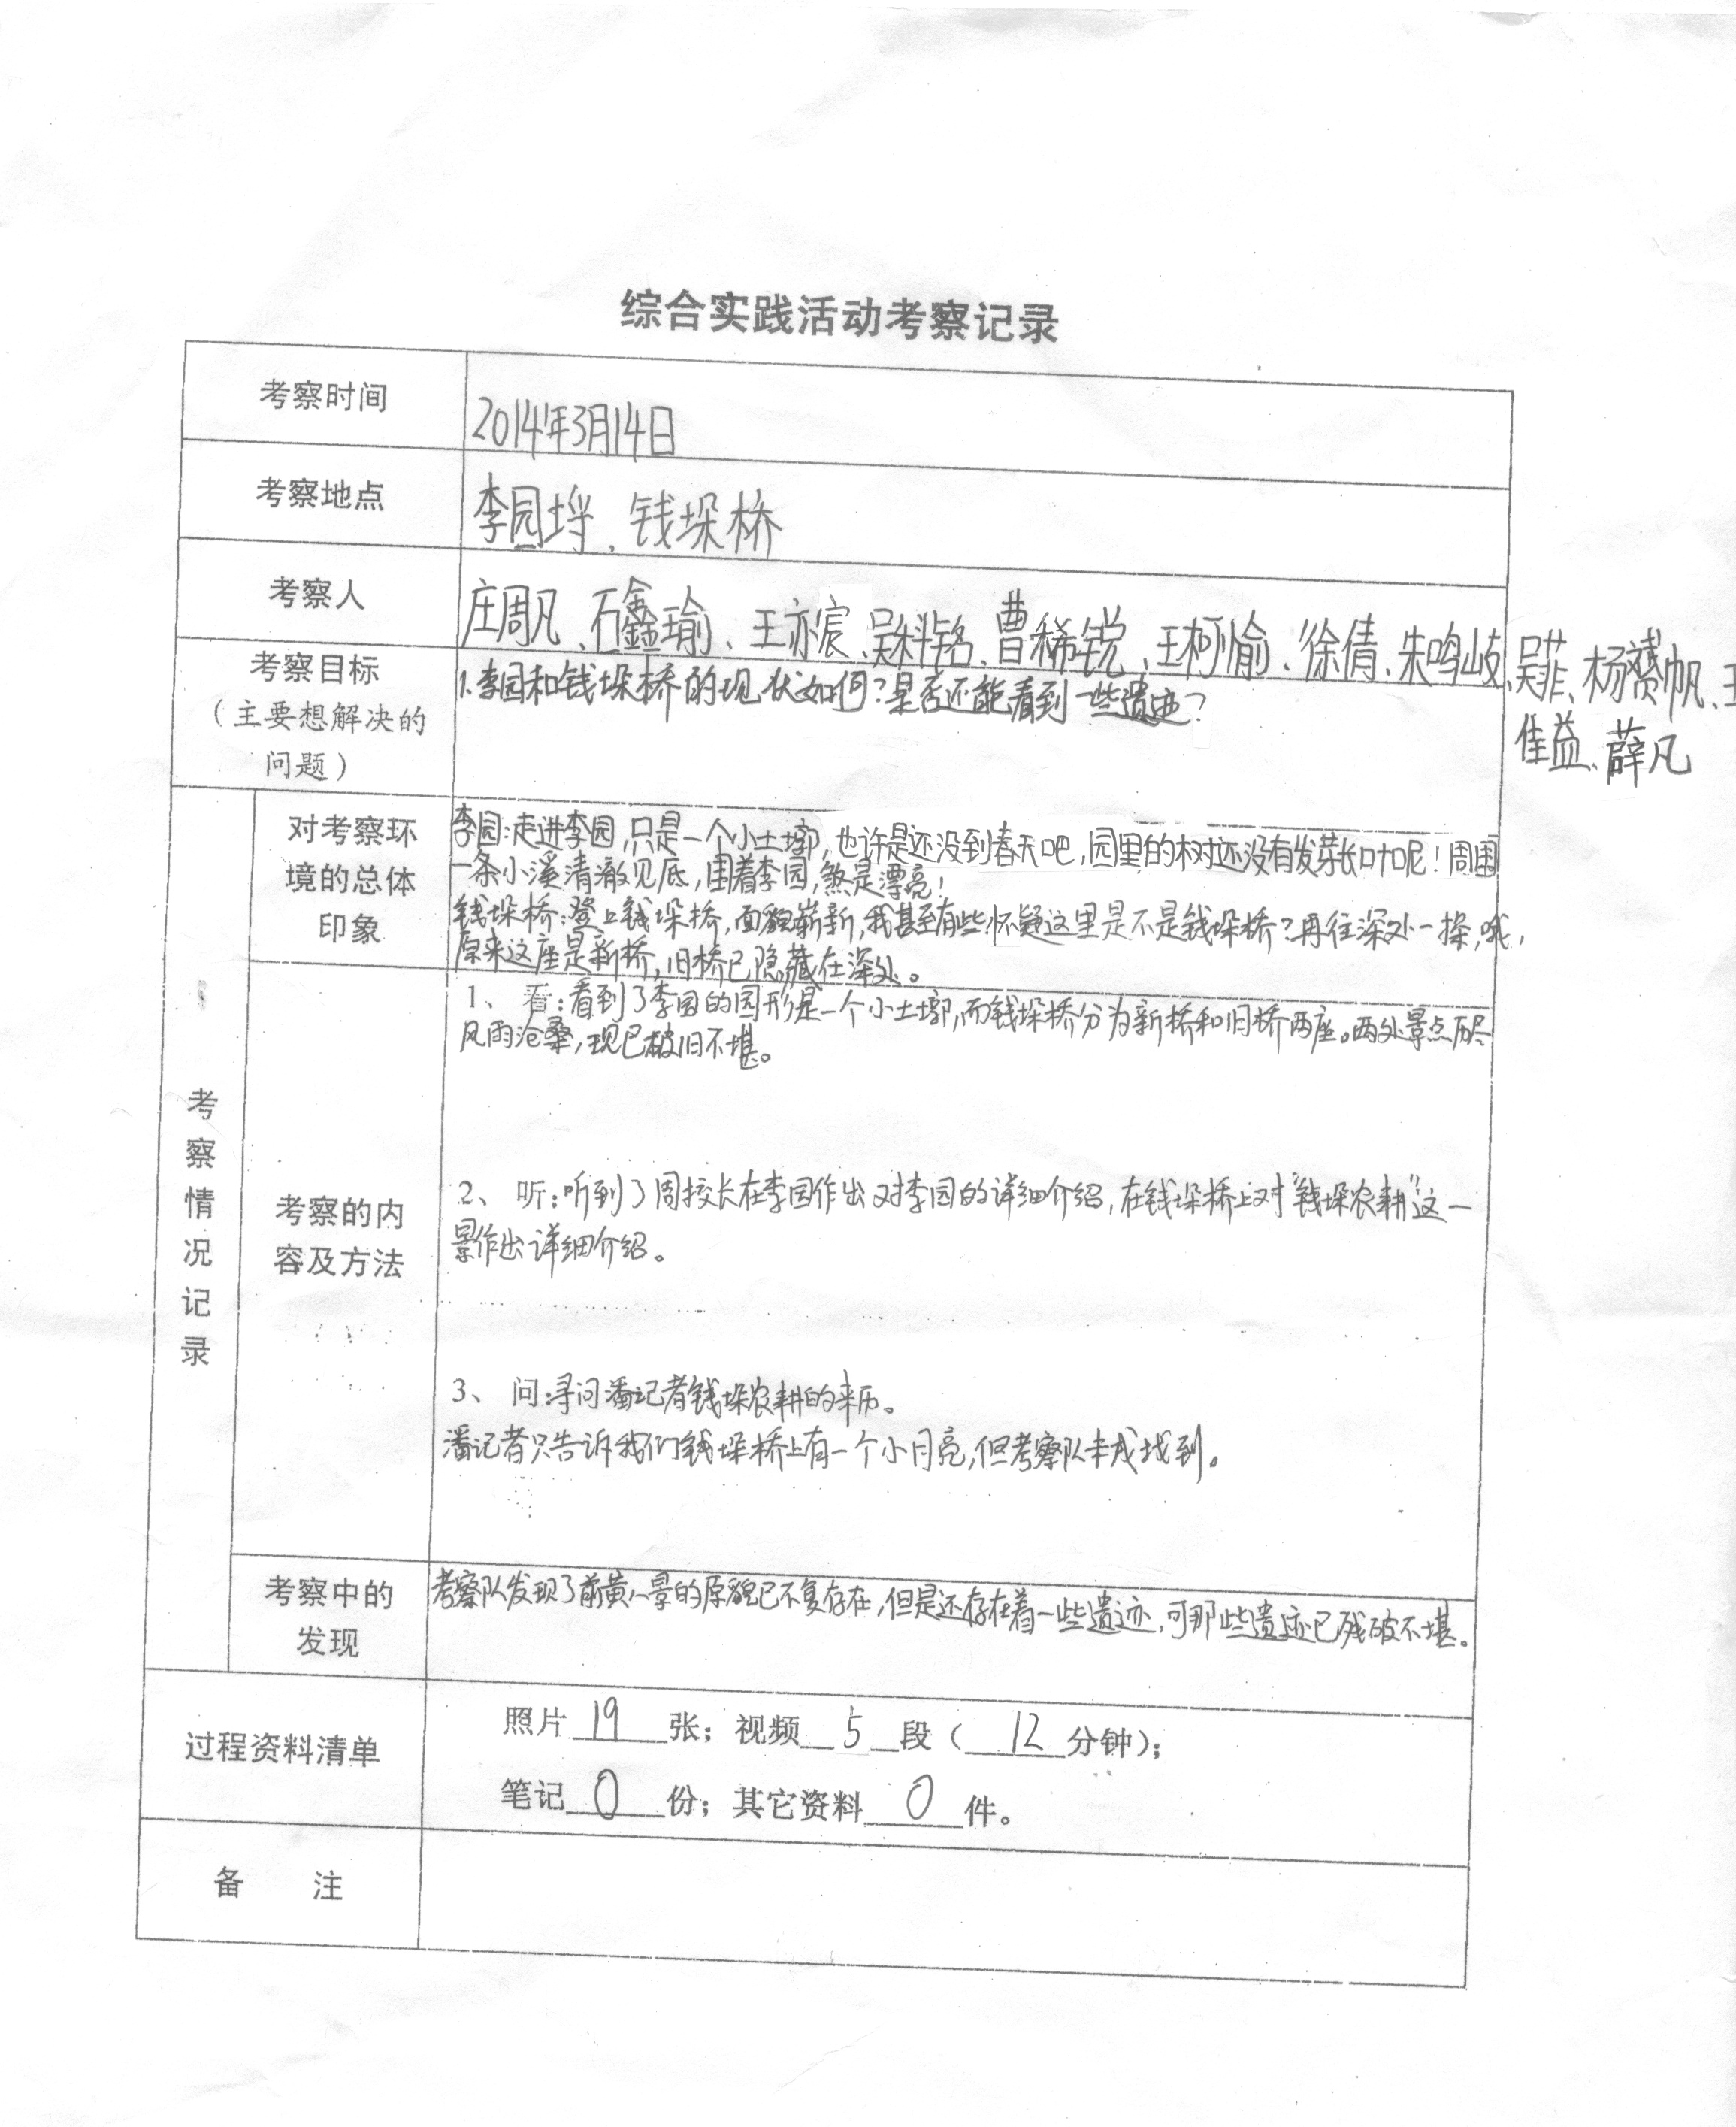 综合实践活动考察记录
考察时间
2014年3月14日
考察地点
李园垺、钱垛桥
考察人
庄周凡、石鑫瑜、王亦宸、吴科铭、曹稀锐、王柯愉、徐倩、朱鸣岐、吴菲、杨赟帆、王
佳益、薛凡
考察目标
（主要想解决的
问题）
1.李园和钱垛桥的现状如何？是否还能看到一些遗迹？
考察情况记录
对考察环
境的总体
印象
李园：走进李园，只是一个小土墩，也许是还没到春天吧，园里的树还没有发芽长叶呢！周围
一条小溪清澈见底，围着李园，煞是漂亮！
钱垛桥：登上钱垛桥，面貌崭新，我甚至有些怀疑这里是不是钱垛桥？再往深处一探，哦，
原来这座是新桥，旧桥已隐藏在深处。
考察的内
容及方法
1、 看：看到了李园的园形是一个小土墩，而钱垛桥分为新桥和旧桥两座。两处景点历尽
风雨沧桑，现已破旧不堪。
2、 听：听到了周校长在李园作出对李园的详细介绍，在钱垛桥上对“钱垛农耕”这一
景作出详细介绍。
3、 问：寻问潘记者钱垛农耕的来历。
潘记者只告诉我们钱垛桥上有一个小月亮，但考察队未成找到。
考察中的
发现
考察队发现了前黄八景的原貌已不复存在，但是还存在着一些遗迹，可那些遗迹已残破不堪。
过程资料清单
照片 19 张；视频 5 段（ 12 分钟）；
笔记 0 份；其它资料 0 件。
备 注